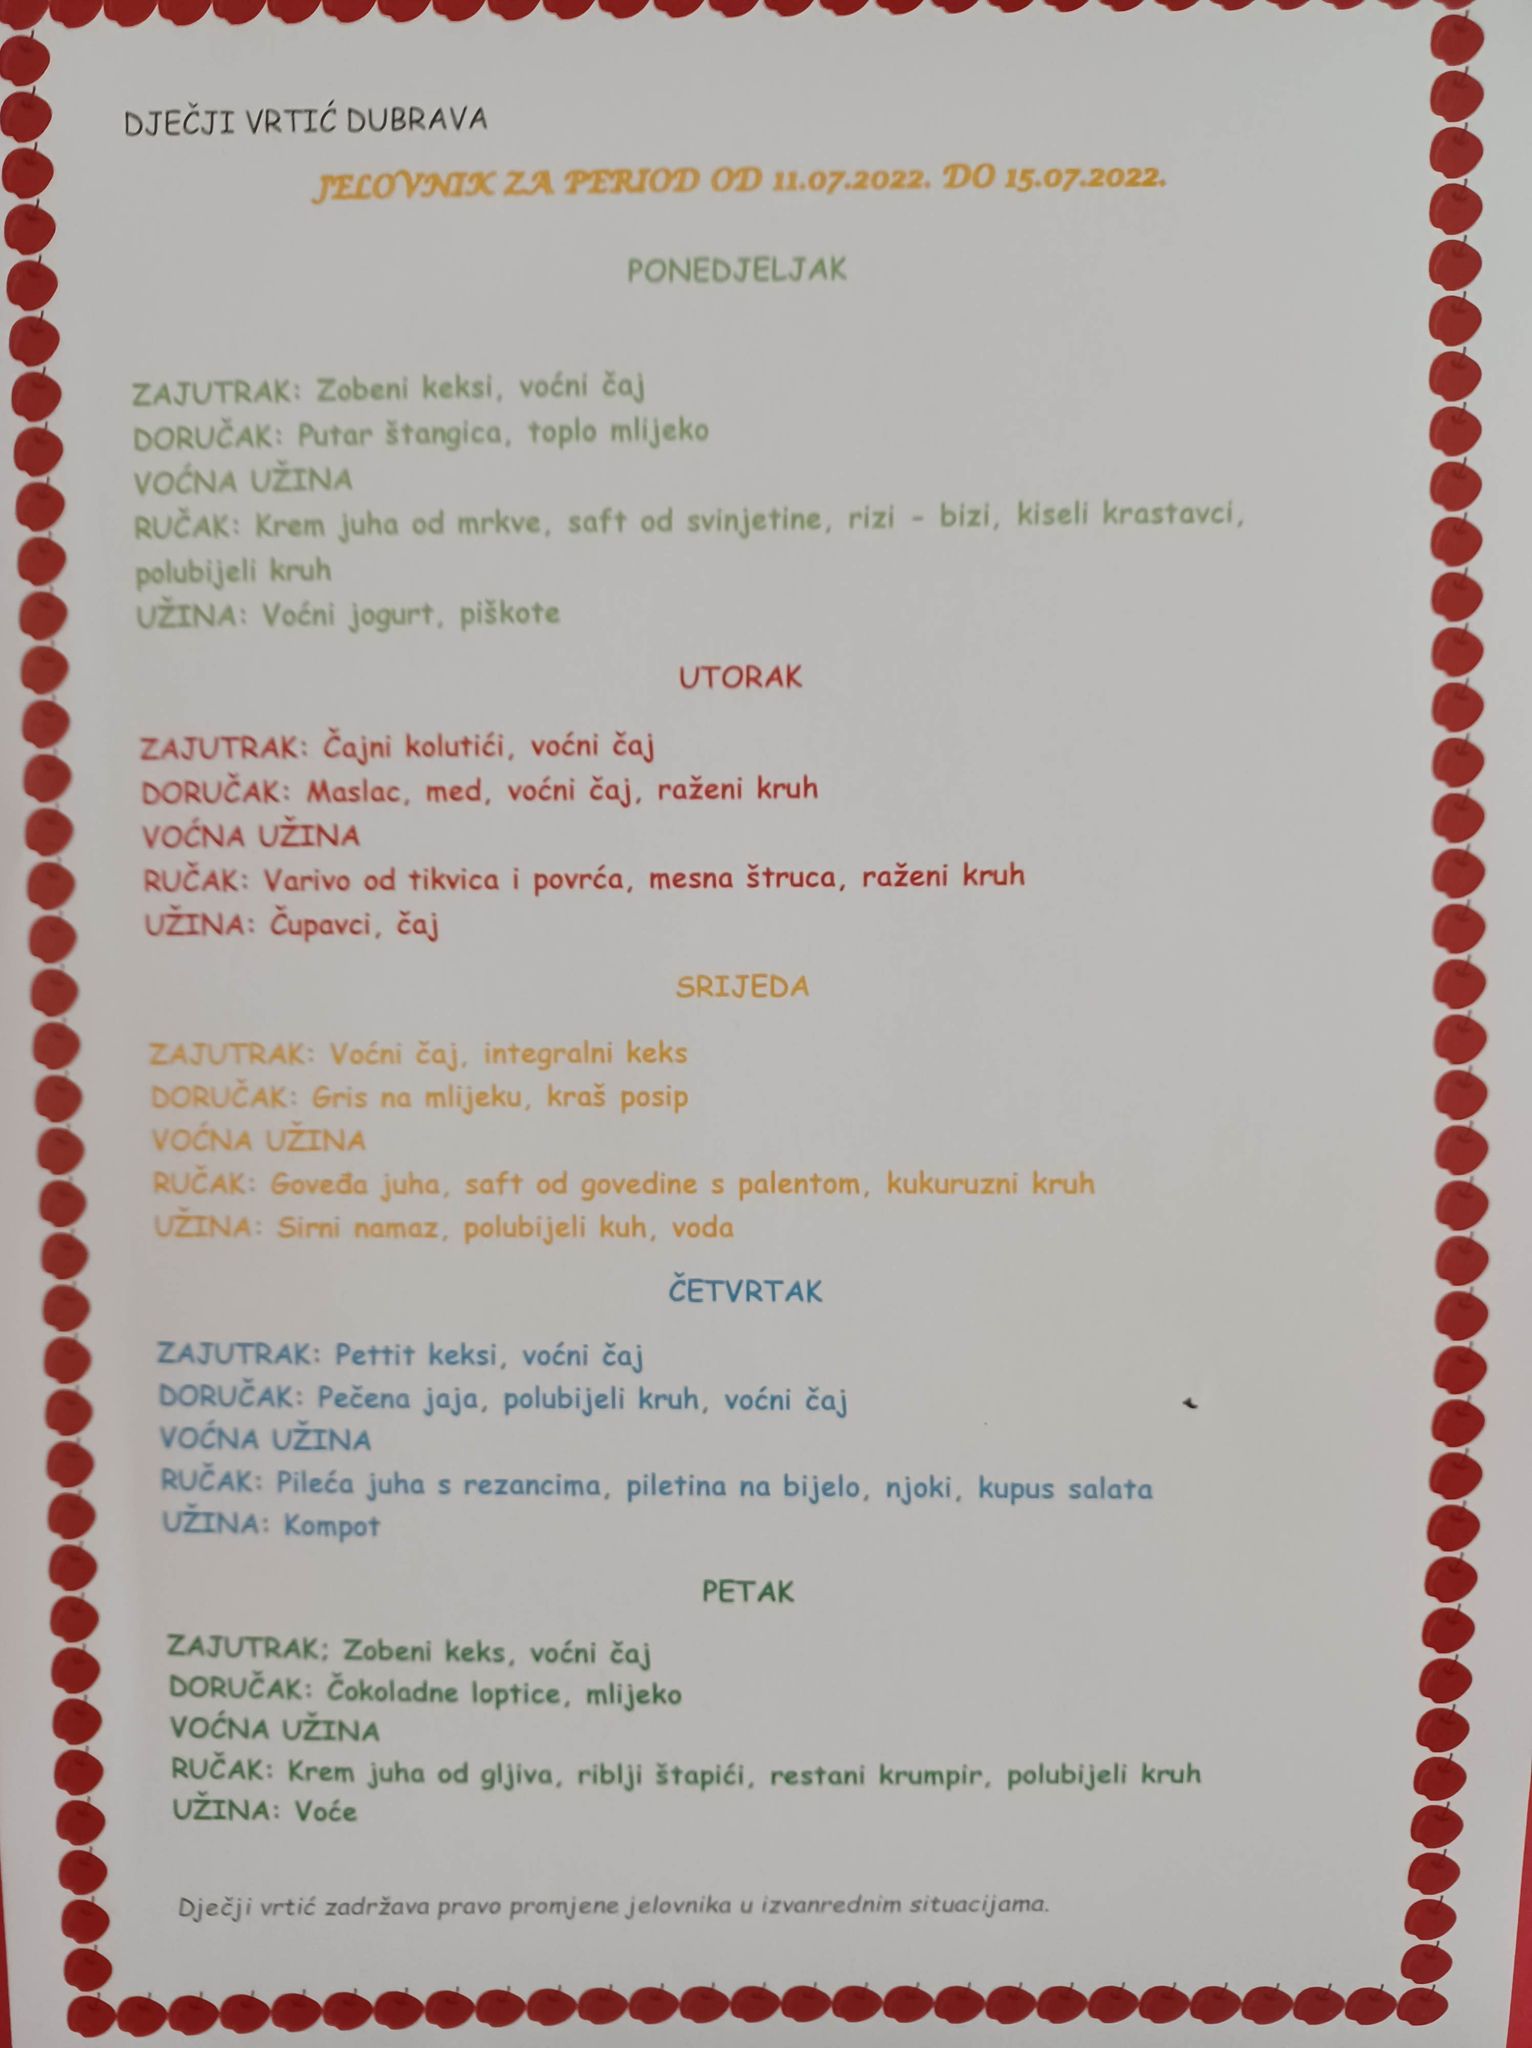 DJEČJI VRTIĆ DUBRAVA
JELOVNIK ZA PERIOD OD 11.07.2022. DO 15.07.2022.
PONEDJELJAK
ZAJUTRAK: Zobeni keksi, voćni čaj
DORUČAK: Putar štangica, toplo mlijeko
VOĆNA UŽINA
RUČAK: Krem juha od mrkve, saft od svinjetine, rizi - bizi, kiseli krastavci,
polubijeli kruh
UŽINA: Voćni jogurt, piškote
UTORAK
ZAJUTRAK: Čajni kolutići, voćni čaj
DORUČAK: Maslac, med, voćni čaj, raženi kruh
VOĆNA UŽINA
RUČAK: Varivo od tikvica i povrća, mesna štruca, raženi kruh
UŽINA: Čupavci, čaj
SRIJEDA
ZAJUTRAK: Voćni čaj, integralni keks
DORUČAK: Gris na mlijeku, kraš posip
VOĆNA UŽINA
RUČAK: Goveđa juha, saft od govedine s palentom, kukuruzni kruh
UŽINA: Sirni namaz, polubijeli kuh, voda
ČETVRTAK
ZAJUTRAK: Pettit keksi, voćni čaj
DORUČAK: Pečena jaja, polubijeli kruh, voćni čaj
VOĆNA UŽINA
RUČAK: Pileća juha s rezancima, piletina na bijelo, njoki, kupus salata
UŽINA: Kompot
PETAK
ZAJUTRAK; Zobeni keks, voćni čaj
DORUČAK: Čokoladne loptice, mlijeko
VOĆNA UŽINA
RUČAK: Krem juha od gljiva, riblji štapići, restani krumpir, polubijeli kruh
UŽINA: Voće
Dječji vrtić zadržava pravo promjene jelovnika u izvanrednim situacijama.